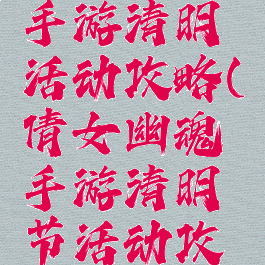 手游清明
活动攻略(
倩女幽魂
手游清明
节活动攻